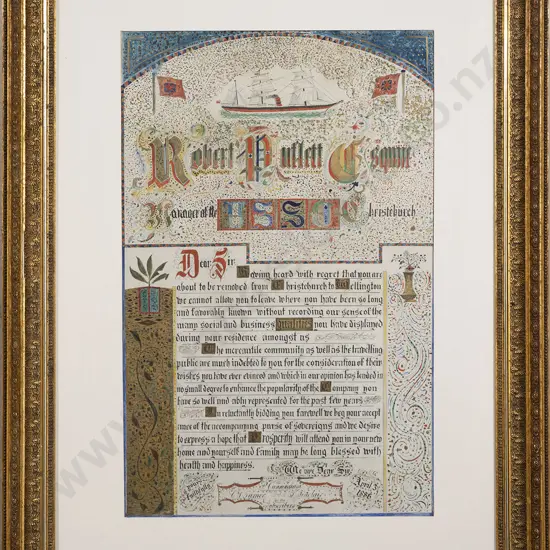 Robert Pullett Esquire
Manager of the USSCo Christchurch
Dear Sir
Having heard with regret that you are
about to be removed from Christchurch to Wellington
we cannot allow you to leave where you have been so long
and favorably known without recording our sense of the
many social and business qualities you have displayed
during your residence amongst us
The mercantile community as well as the travelling
public are much indebted to you for the consideration of their
wishes you have ever evinced and which in our opinion has tended in
no small degree to enhance the popularity of the Company you
have so well and ably represented for the past few years
In reluctantly bidding you farewell we beg your accept
ance of the accompanying purse of sovereigns and we desire
to express a hope that Prosperity will attend you in your new
home and yourself and family may be long blessed with
health and happiness.
We are Dear Sir
April 3
1886